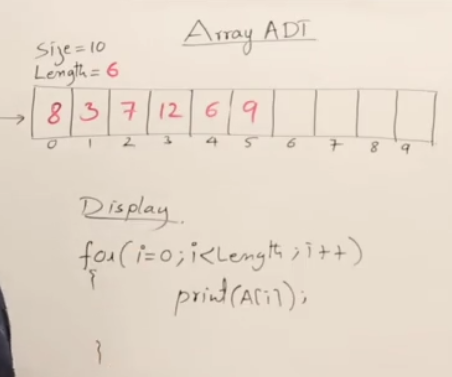 Array ADT
Size = 10
Length = 6
8 3 7 12 6 9
0 1 2 3 4 5 6 7 8 9
Display
for(i=0; i<Length; i++)
{
print(A[i]);
}